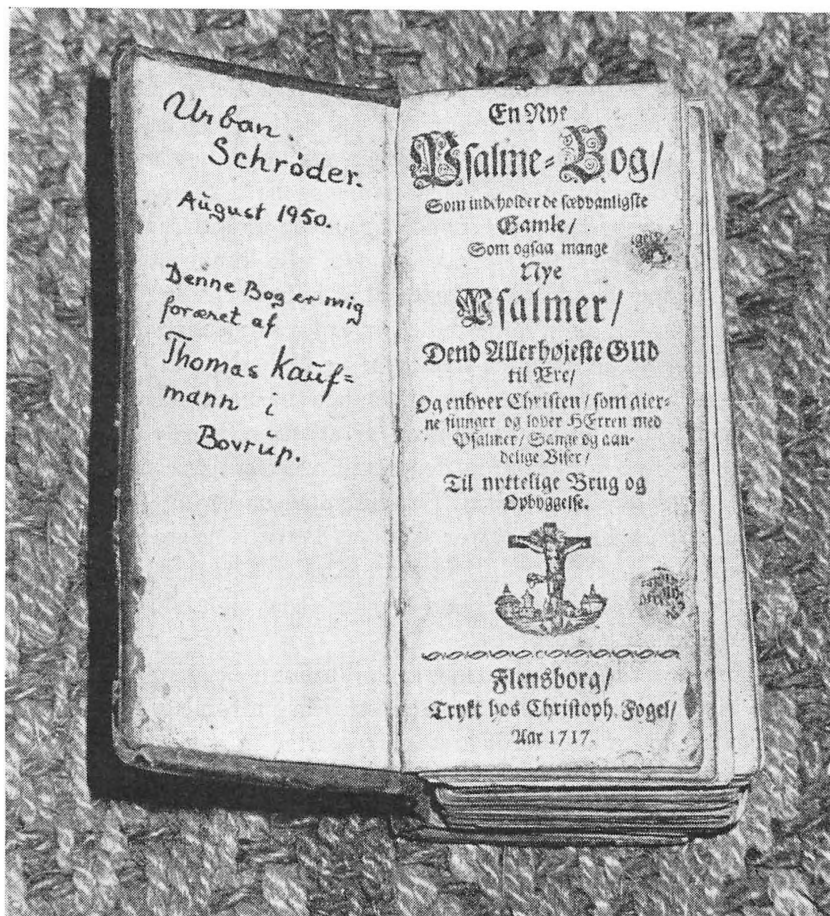 Urban.
Schröder.
August 1950.
Denne Bog er mig
foræret af
Thomas Kauf=
mann i
Bovrup.
En Nye
Psalme-Bog/
Som indeholder de sædvanligste
Gamle/
Som ogsaa mange
Nye
Psalmer/
Dend Allerhøjeste GUd
til Ære/
Og enhver Christen/ som gier-
ne siunger og lover HErren med
Psalmer/ Sange og aan-
delige Viser/
Til nyttelige Brug og
Opbyggelse.
Flensborg/
Trykt hos Christoph. Fogel/
Aar 1717.